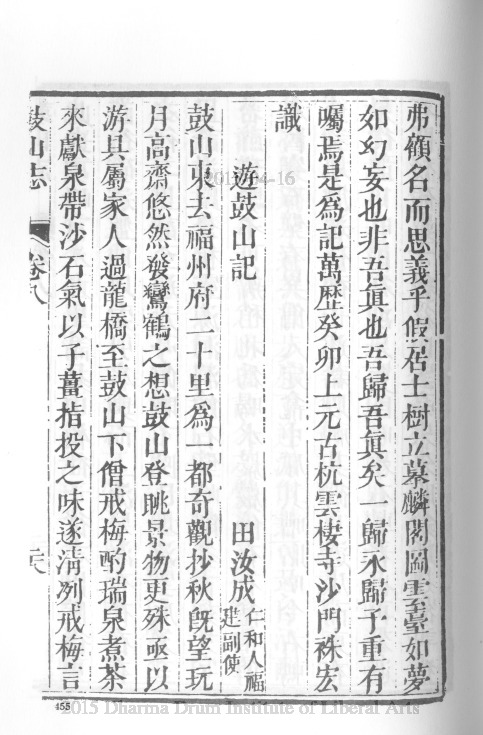 弗顧名而思義乎假居士樹立墓麟閣圖雲臺如夢
如幻妄也非吾眞也吾歸吾眞矣一歸永歸予重有
囑焉是爲記萬歷癸卯上元古杭雲棲寺沙門袾宏
識
遊鼓山記 田汝成 仁和人福建副使
鼓山東去福州府二十里爲一都奇觀抄秋旣望玩
月高齋悠然發鸞鶴之想鼓山登眺景物更殊亟以
游具屬家人過龍橋至鼓山下僧戒梅酌瑞泉煮茶
來獻泉帶沙石氣以子薑揩投之味遂清冽戒梅言
鼓山志 卷八 二六
455
2015 Dharma Drum Institute of Liberal Arts